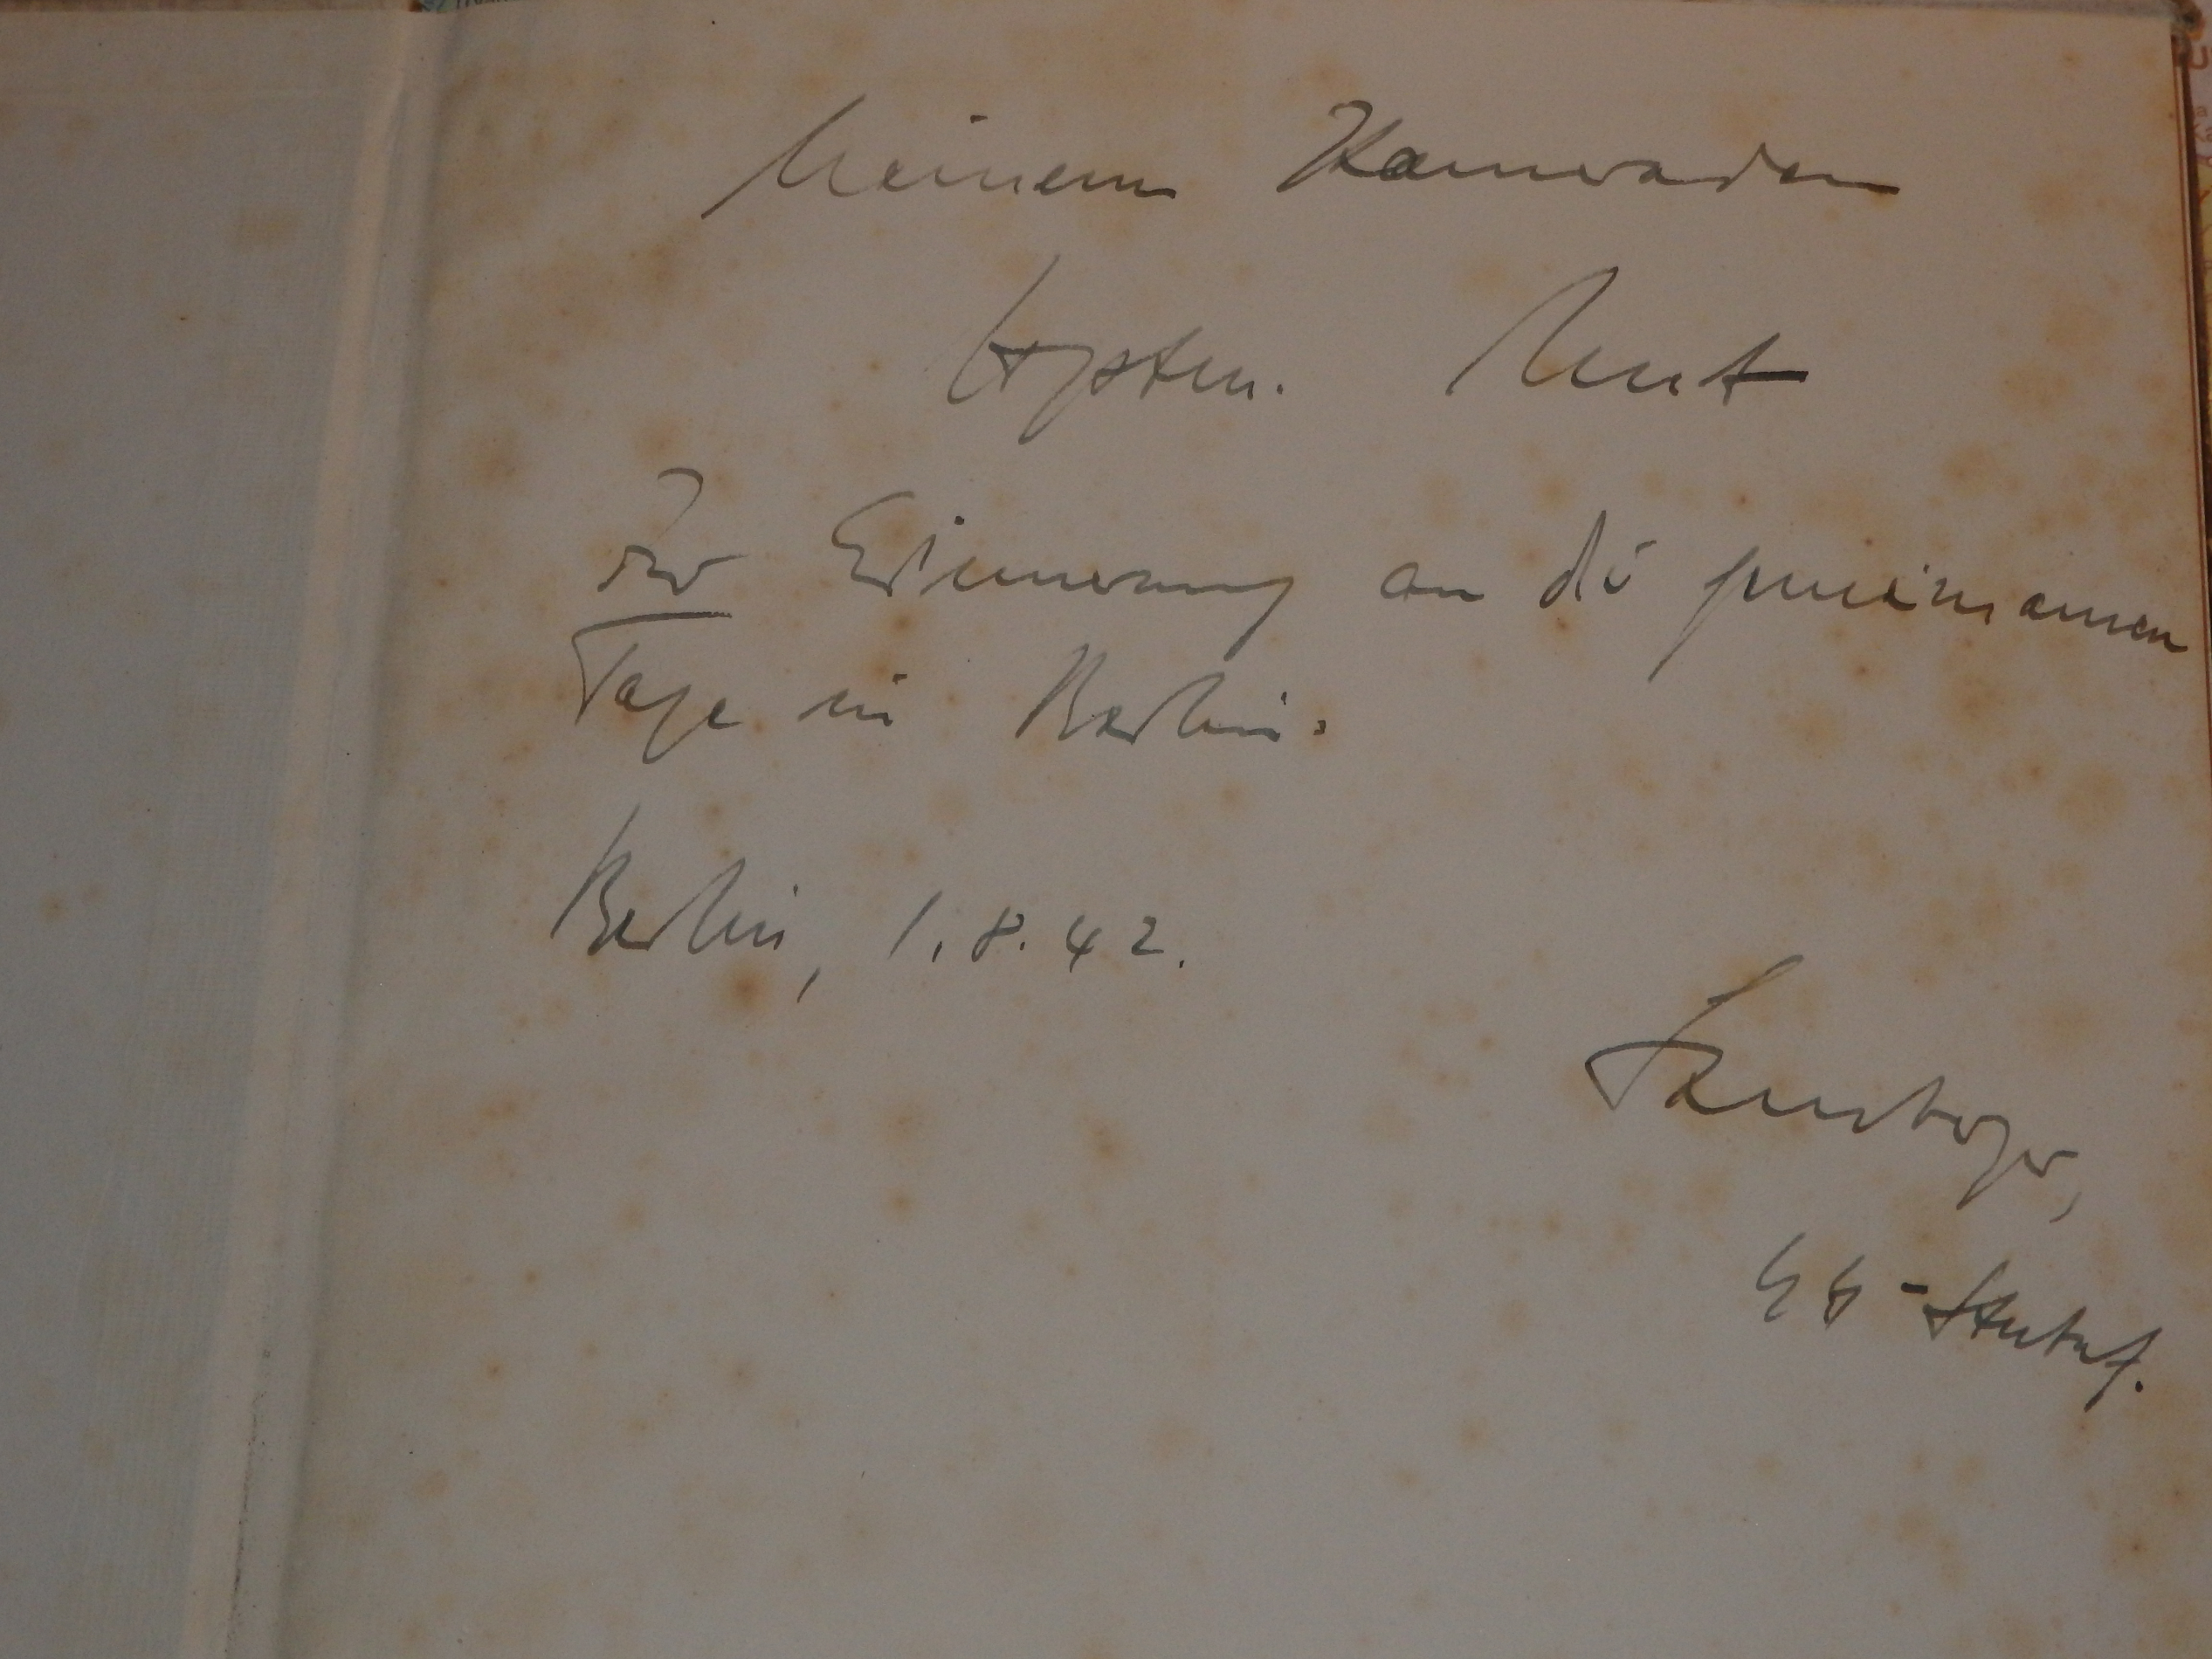 Meinem Kameraden
Hpstm.
Zur Erinnerung an die gemeinsamen
Tage in Berlin.
Berlin, 1.8.42.
SS-Stubaf.